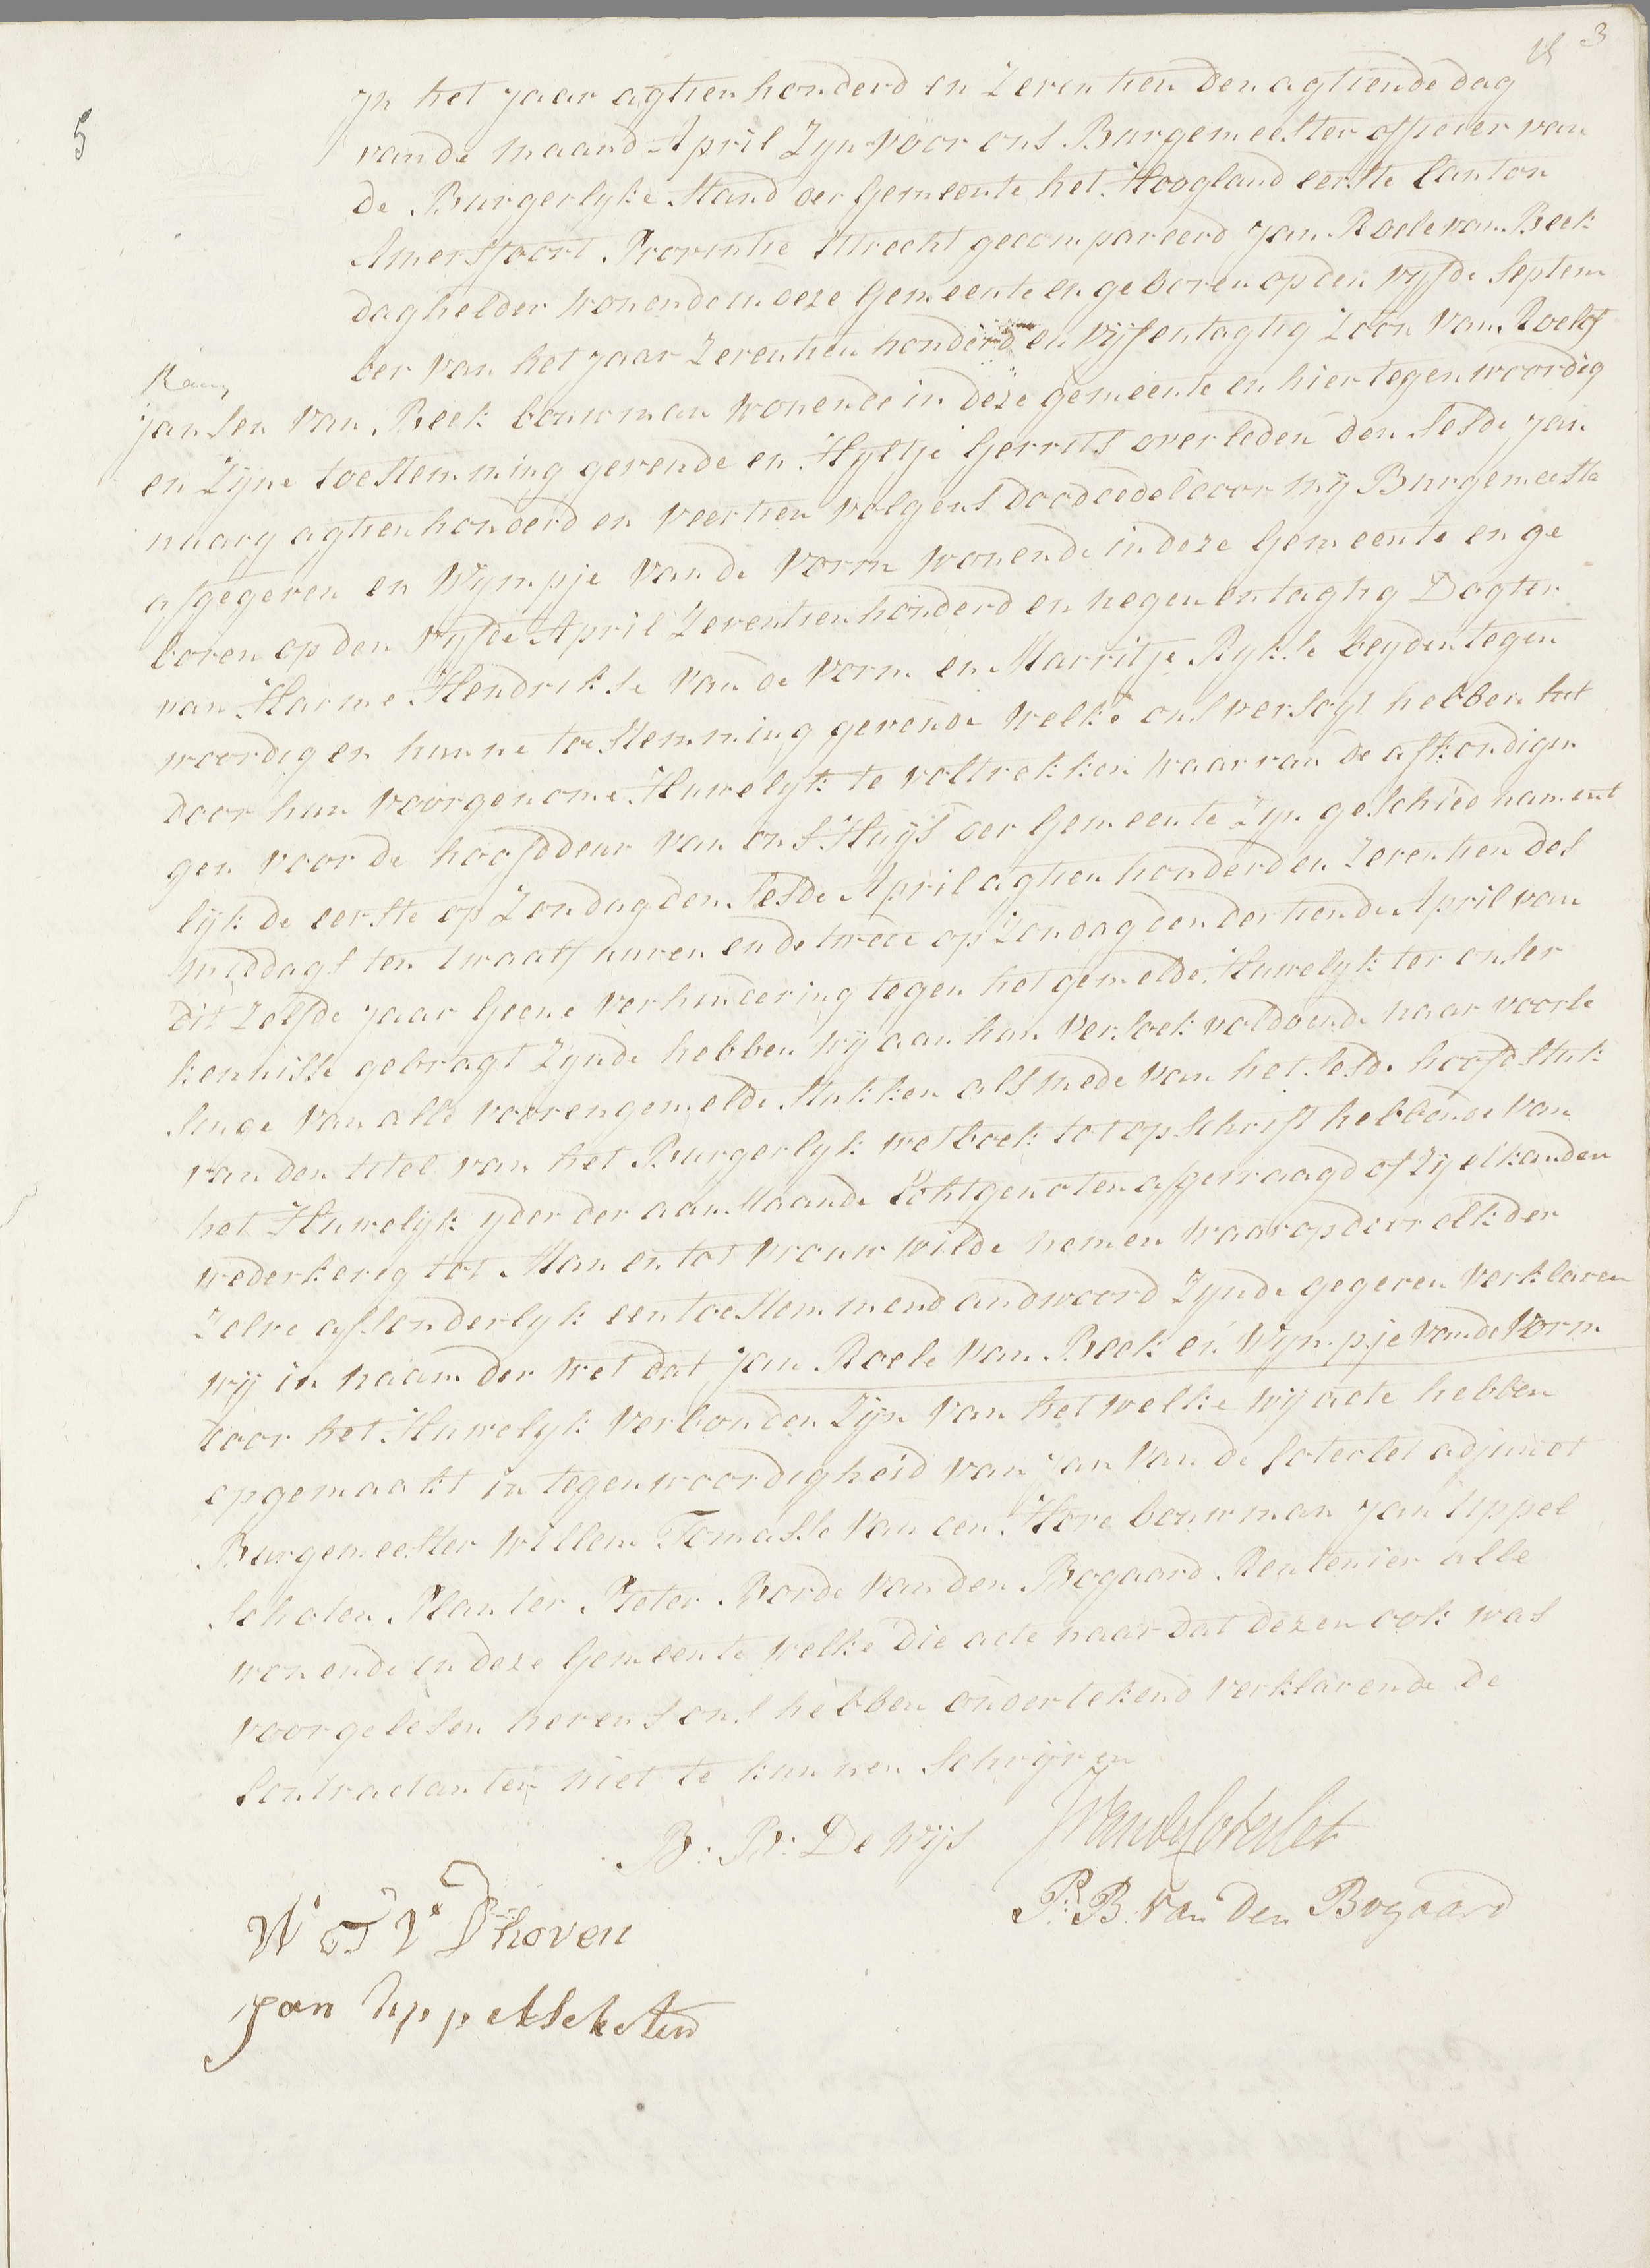 3
5
Jn het jaar agtien honderd en Zeventien den agtiende dag
van de maand April Zyn voor ons Burgemeester officier van
de Burgerlyke Stand der Gemeente het Hoogland eerste Canton
Amersfoort Provintie Utrecht gecompareerd Jan Roele van Beek
daghelder wonende in deze Gemeente en geboren op den vyfde Septem
ber van het jaar Zeventien honderd en Vyfentagtig Zoon van Roelof
Jansen van Beek bouwman wonende in deze gemeente en hier tegenwoordig
en Zijne toestemming gevende en Hyltje Gerrits overleden den Sesde Jan
nuary agtien honderd en veertien volgens doodcedel door mij Burgemeester
afgegeven en Wympje van de Vorm wonende in deze Gemeente en ge
boren op den vyfde April Zeventien honderd en negen en tagtig Dogter
van Harme Hendrikse van de Vorm en Marritje Rykse beyden tegen
woordig en hunne toestemming gevende welke ons versogt hebben het
door hun voorgenome Huwelyk te voltrekken waar van de afkondigin
gen voor de hoofddeur van ons Huys der Gemeente Zyn geschied nament
lijk de eerste op Zondag den Sesde April agtien honderd en Zeventien des
middags ten twaalf uuren en de twede op Zondag den dertiende April van
dit Zelfde jaar Geene verhindering tegen het gemelde Huwelyk ter onser
kennisse gebragt Zynde hebben wij aan hun Versoek voldoende naar voorle
singe van alle voorengemelde Stukken als mede van het sesde hoofdstuk
van den titel van het Burgerlyk wetboek tot opschrift hebbende van
het Huwelijk yder der aanstaande Echtgenoten afgevraagd of Zij elkanden
wederkerig tot Man en tot vrouw wilde nemen waar op door elk der
Zelve afsonderlyk een toestemmend andwoord Zynde gegeven verklaren
wij in naam der wet dat Jan Roele van Beek en Wympje van de Vorm
door het Huwelyk verbonden Zijn van het welke wij acte hebben
opgemaakt in tegenwoordigheid van Jan van de Coterlet adjunct
Burgemeester Willem Tomasse van den Hove bouwman Jan Uppel
Schoten Planter Pieter Borde van den Bogaard Rentenier alle
wonende in deze Gemeente welke die acte naar dat dezen ook was
voorgelesen nevens ons hebben ondertekend verklarende de
Contractanten niet te kunnen Schrijven
B: B: De Wijs
JvandeCoterlet
W T V Dhoven
P: B: van Den Bogaard
Jan Uppelschoten